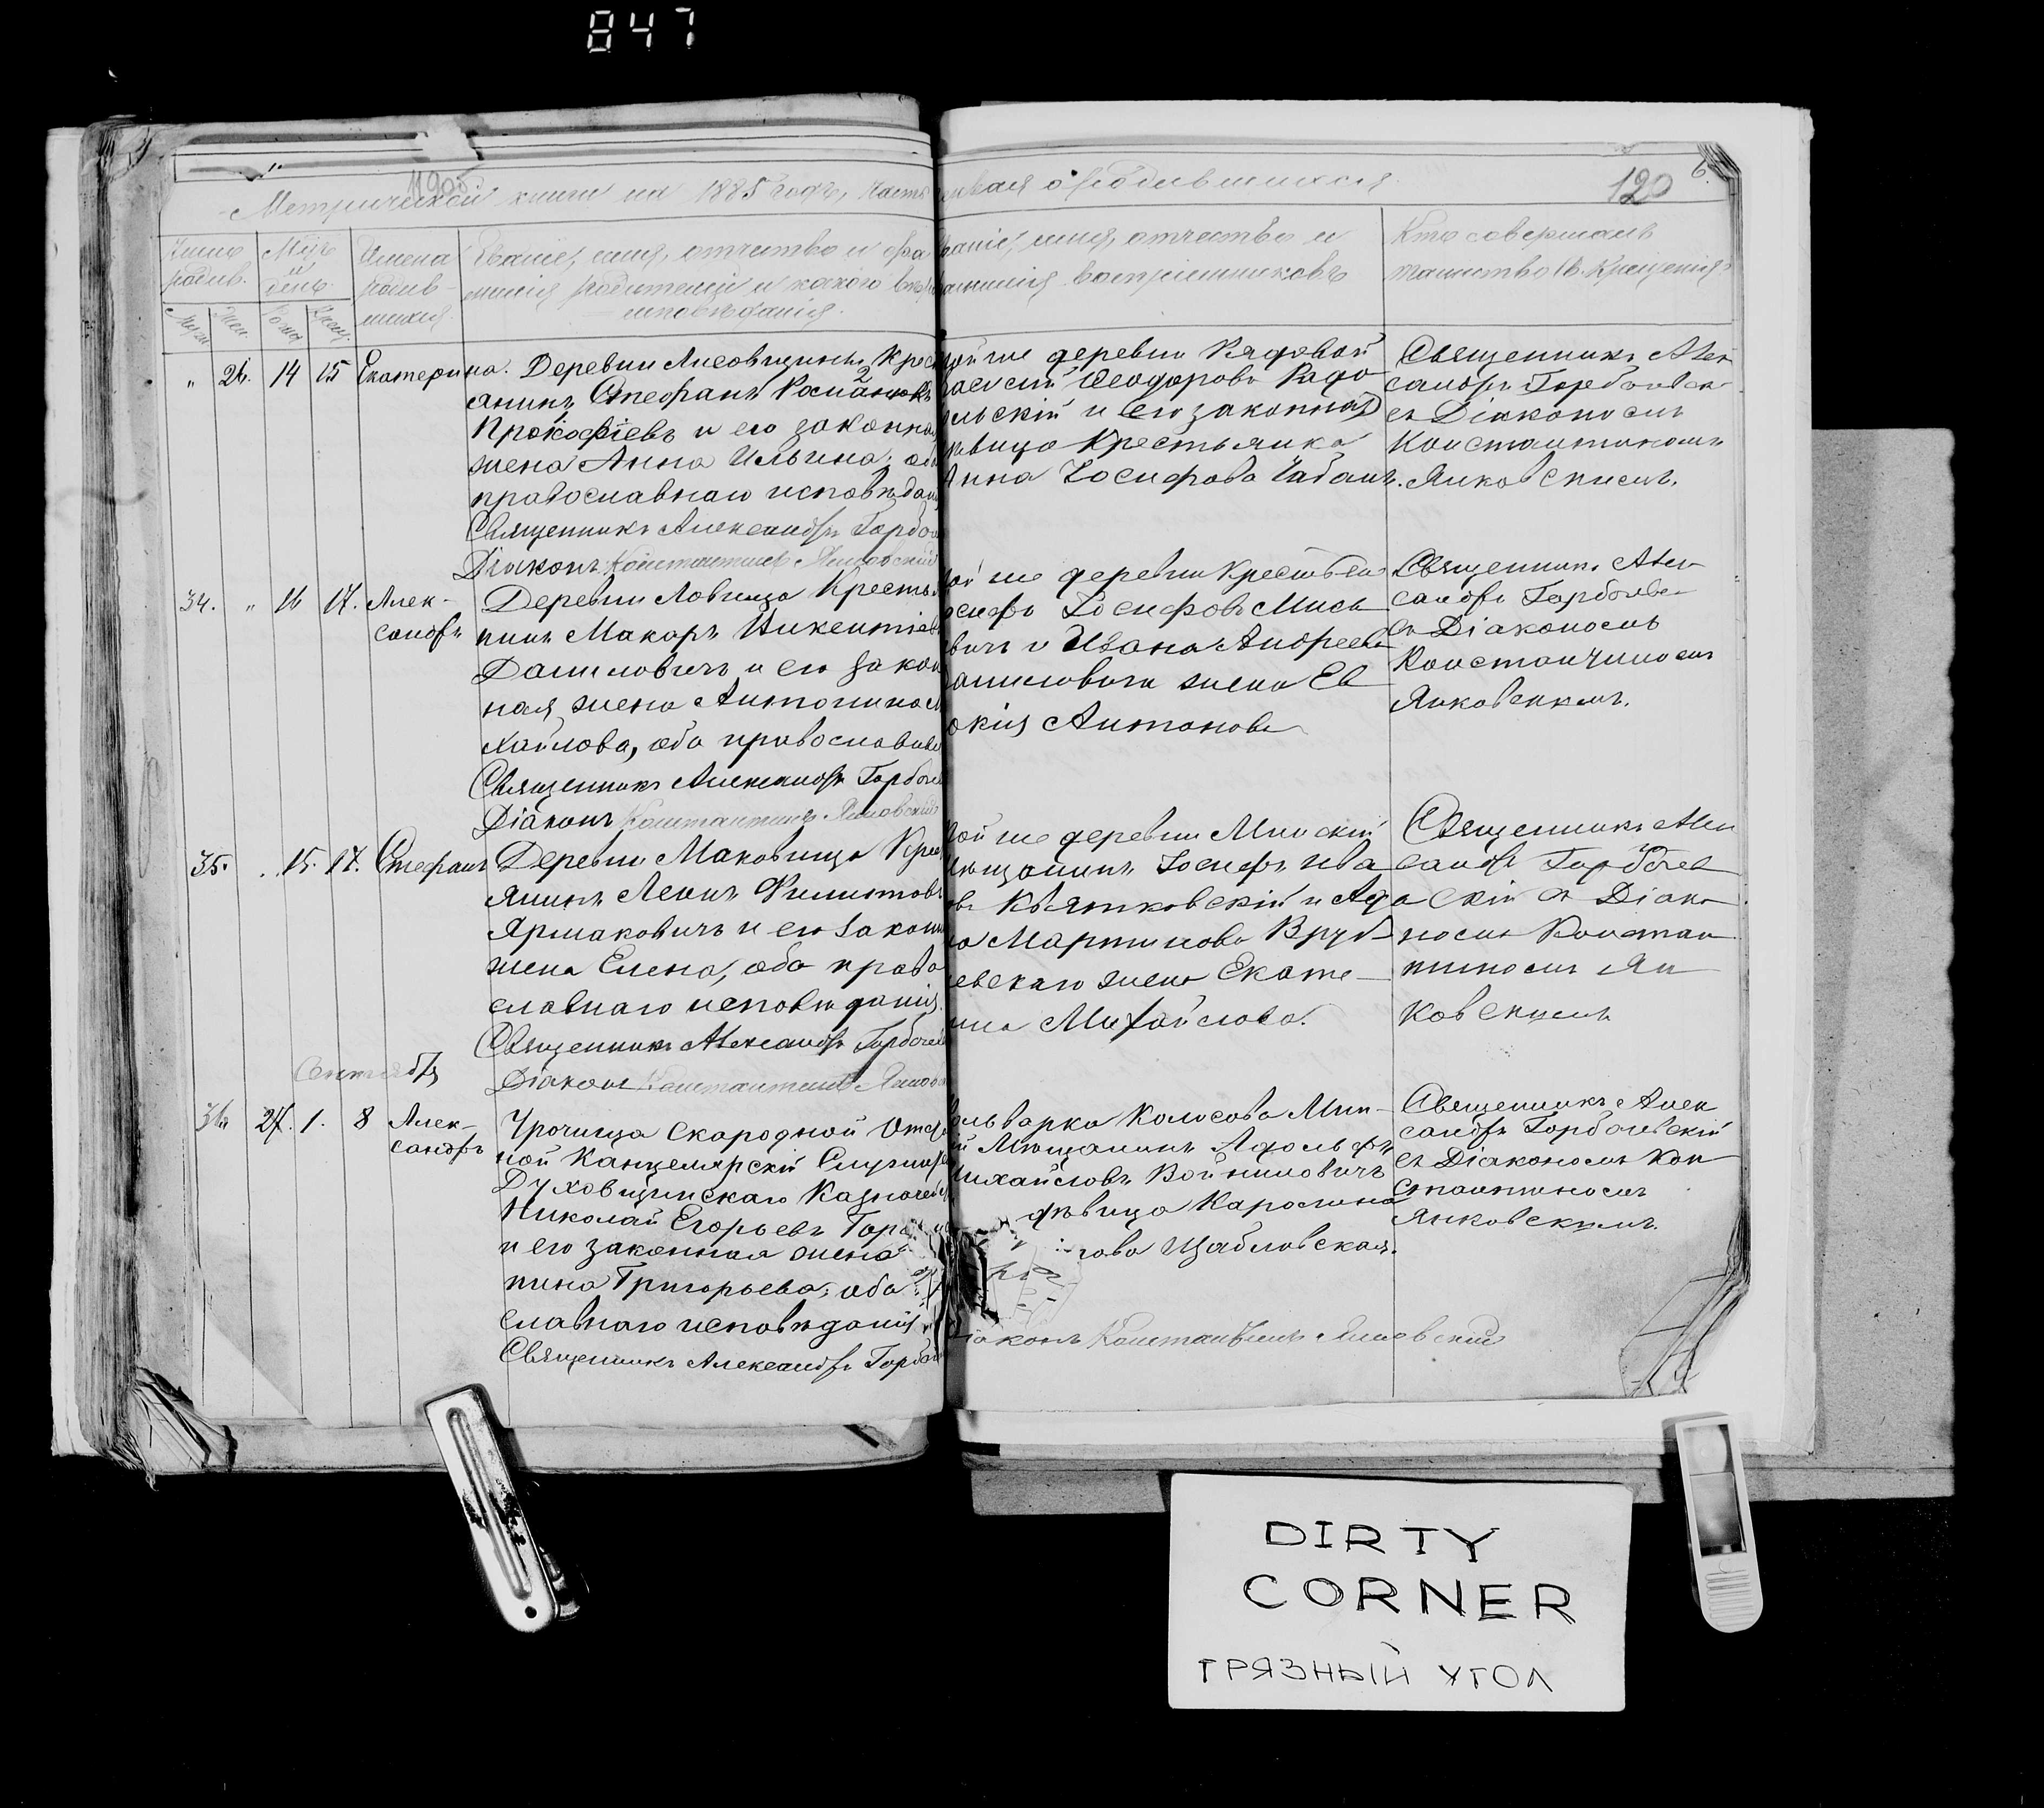 847
1190б
Метрической книги на 1885 годъ, часть
первая о родившихся.
120
6.
Число родив.
Мѣс. и день
Имена родив-
шихся.
Званіе, имя, отчество и фа
милія родителей и какого вѣро
исповѣданія.
Муж.
Жен.
званіе, имя, отчество и
фамилія воспріемниковъ
Кто совершалъ
таинство св. Крещенія
" 26. 14 15 Екатерина.
Деревни Лисовщины Крест
янинъ Стефанъ
Прокофіевъ и его законная
жена Анна Ильина, оба
православнаго исповѣданія
Священникъ Александръ Горбач
Діаконъ Константинъ Янковскій
той же деревни Рядовой
Ѳеодоровъ Радо
льскій и его законная
дѣвица Крестьянка
Анна Іосифова Чабанъ.
Священникъ Алек
сандръ
съ Діакономъ
Константиномъ
Янковскимъ.
34. " 16 17. Алек-
сандръ
Деревни Ловища Крестья
нинъ Макаръ Викентіевъ
Даниловичъ и его закон
ная жена Антонина М
хайлова, оба православн
Священникъ Александръ Горбаче
Діаконъ Константинъ Янковскій
той же деревни Крестьян
осифъ Іосифовъ Мись
вичъ и Ивана Андреева
аниловича жена Ев
окія Антонова
Священникъ Алек
сандръ
съ Діакономъ
Константиномъ
Янковскимъ.
35. 15. 17. Стефанъ
Деревни Маковища Крес
янинъ Леонъ Филиповъ
Ярмаковичъ и его законн
жена Елена, оба право
славнаго исповѣданія.
Священникъ Александръ Горбаче
Діаконъ Константинъ Янков
той же деревни Минскій
мѣщанинъ Іосифъ Ива
овъ Квятковскій и Ада
ма Мартинова Вруб-
левскаго жена Екате-
рина Михайлова.
Священникъ Алек
сандръ Горбачев
скій съ Діако
номъ Констан
тиномъ Ян
ковскимъ
Сентябрь
36 27. 1. 8 Алек-
сандръ
Урочища Скародной Отста
ной Канцелярскій Служитель
Духовщинскаго Казначей
Николай Егорьевъ Гор
и его законная жена
нина Григорьева, оба
славнаго исповѣданія
Священникъ Александръ Горбаче
Фольварка Колосова Мин-
й Мѣщанинъ Адольфъ
Михайловъ Войниловичъ
дѣвица Каролина
гова Щабловская.
Діаконъ Константинъ Янковскій
Священникъ Алек
сандръ Горбачевскій
съ Діакономъ Кон
стантиномъ
Янковскимъ.
DIRTY
CORNER
ГРЯЗНЫЙ УГОЛ